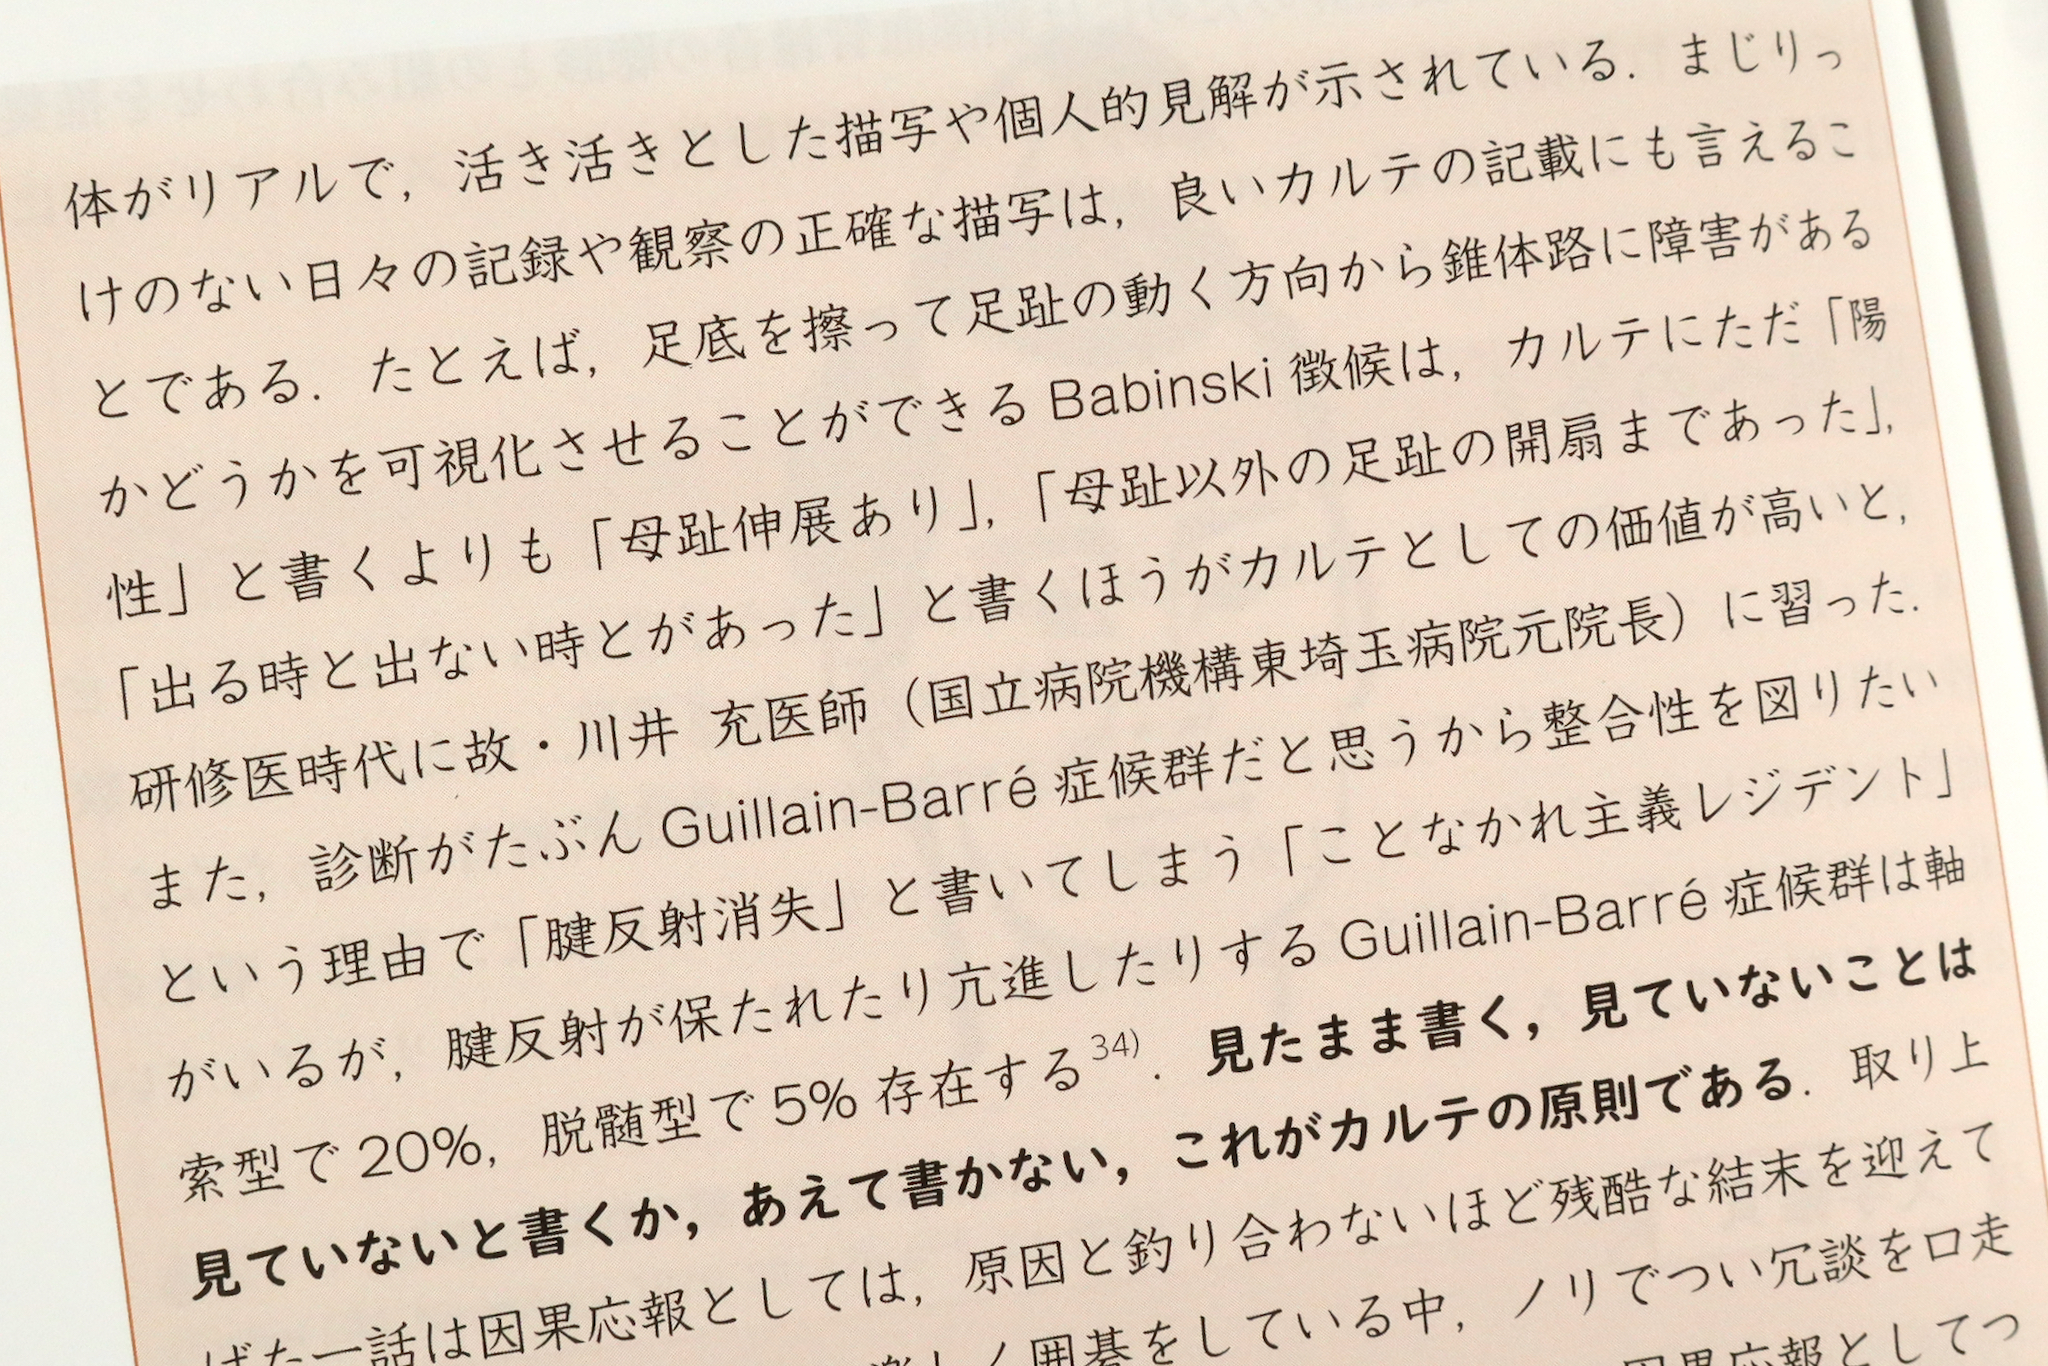 体がリアルで，活き活きとした描写や個人的見解が示されている．まじりっ
けのない日々の記録や観察の正確な描写は，良いカルテの記載にも言えるこ
とである．たとえば，足底を擦って足趾の動く方向から錐体路に障害がある
かどうかを可視化させることができる Babinski 徴候は，カルテにただ「陽
性」と書くよりも「母趾伸展あり」，「母趾以外の足趾の開扇まであった」，
「出る時と出ない時とがあった」と書くほうがカルテとしての価値が高いと，
研修医時代に故・川井 充医師（国立病院機構東埼玉病院元院長）に習った．
また，診断がたぶん Guillain-Barré 症候群だと思うから整合性を図りたい
という理由で「腱反射消失」と書いてしまう「ことなかれ主義レジデント」
がいるが，腱反射が保たれたり亢進したりする Guillain-Barré 症候群は軸
索型で 20%，脱髄型で 5% 存在する34)．見たまま書く，見ていないことは
見ていないと書くか，あえて書かない，これがカルテの原則である．取り上
げた一話は因果応報としては，原因と釣り合わないほど残酷な結末を迎えて
楽しく囲碁をしている中，ノリでつい冗談を口走
因果応報としてつ